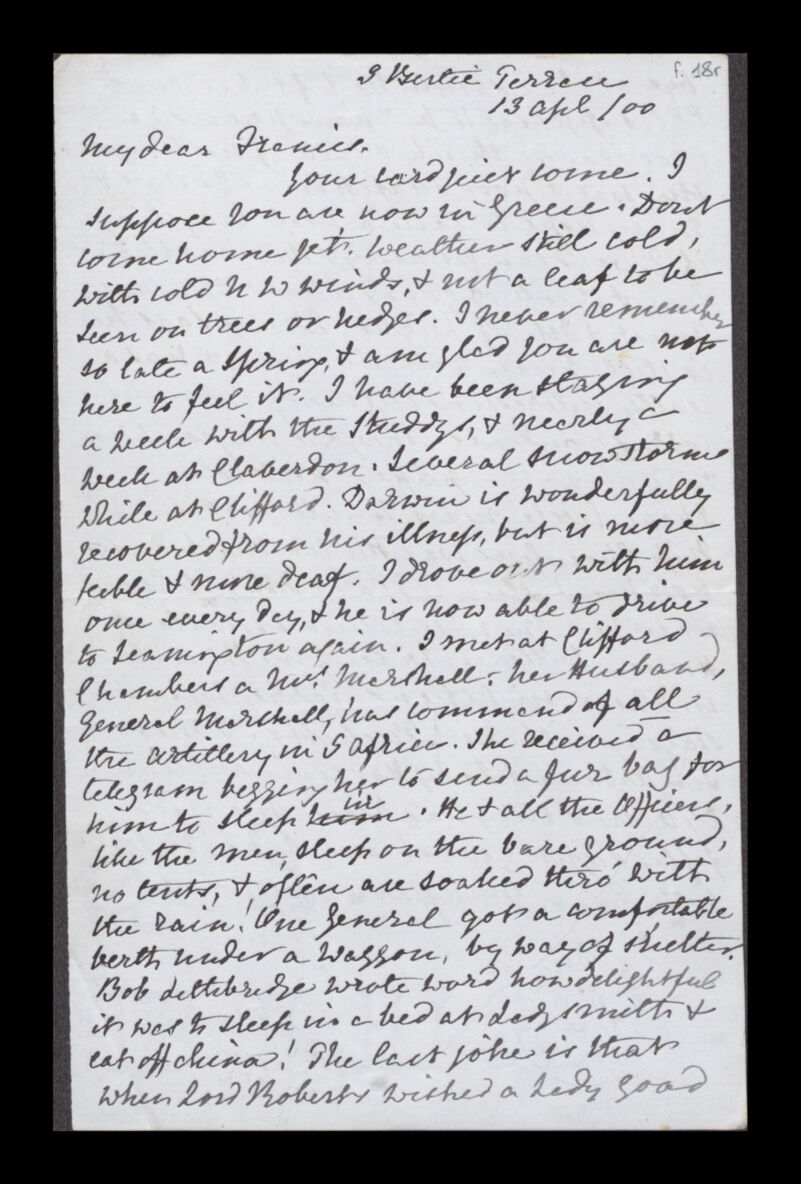 f. 18r
5 Bertie Terrace
13 Apl /00
My dear Francis.
Your card just come. I
suppose you are now in Greece. Dont
come home yet. Weather still cold,
with cold N W winds, & not a leaf to be
seen on trees or hedges. I never remember
so late a Spring, & am glad you are not
here to feel it. I have been staying
a week with the Studdys, & nearly a
week at Claverdon. Several snow storms
while at Clifford. Darwin is wonderfully
recovered from his illness, but is more
feeble & more deaf. I drove out with him
once every day, & he is now able to drive
to Leamington again. I met at Clifford
Chambers a Mrs. Marshall: her Husband,
General Marshall, has command of all
the artillery in S Africa. She received a
telegram begging her to send a fur bag for
him to sleep him in. He & all the Officers,
like the men, sleep on the bare ground,
no tents, & often are soaked thro' with
the rain! One General got a comfortable
berth under a waggon, by way of shelter.
Bob Lethbridge wrote word how delightful
it was to sleep in a bed at Ladysmith &
eat off china! The last joke is that
when Lord Roberts wished a Lady good